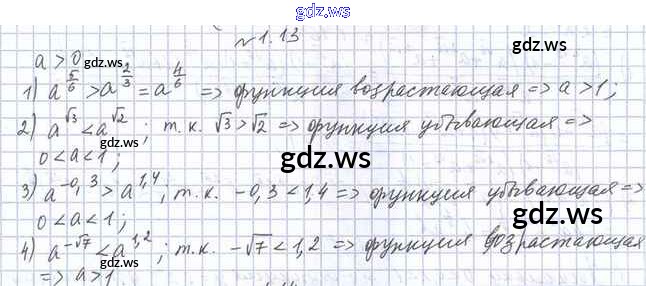 gdz.ws
№1.13
a > 0
gdz.ws
1) a^{5/6} > a^{2/3} = a^{4/6} => функция возрастающая => a > 1;
2) a^{√3} < a^{√2}; т.к. √3 > √2 => функция убывающая =>
gdz.ws
0 < a < 1;
3) a^{-0,3} > a^{1,4}; т.к. -0,3 < 1,4 => функция убывающая =>
gdz.ws
0 < a < 1;
gdz.ws
4) a^{-√7} < a^{1,2}; т.к. -√7 < 1,2 => функция возрастающая
gdz.ws
=> a > 1
gdz.ws